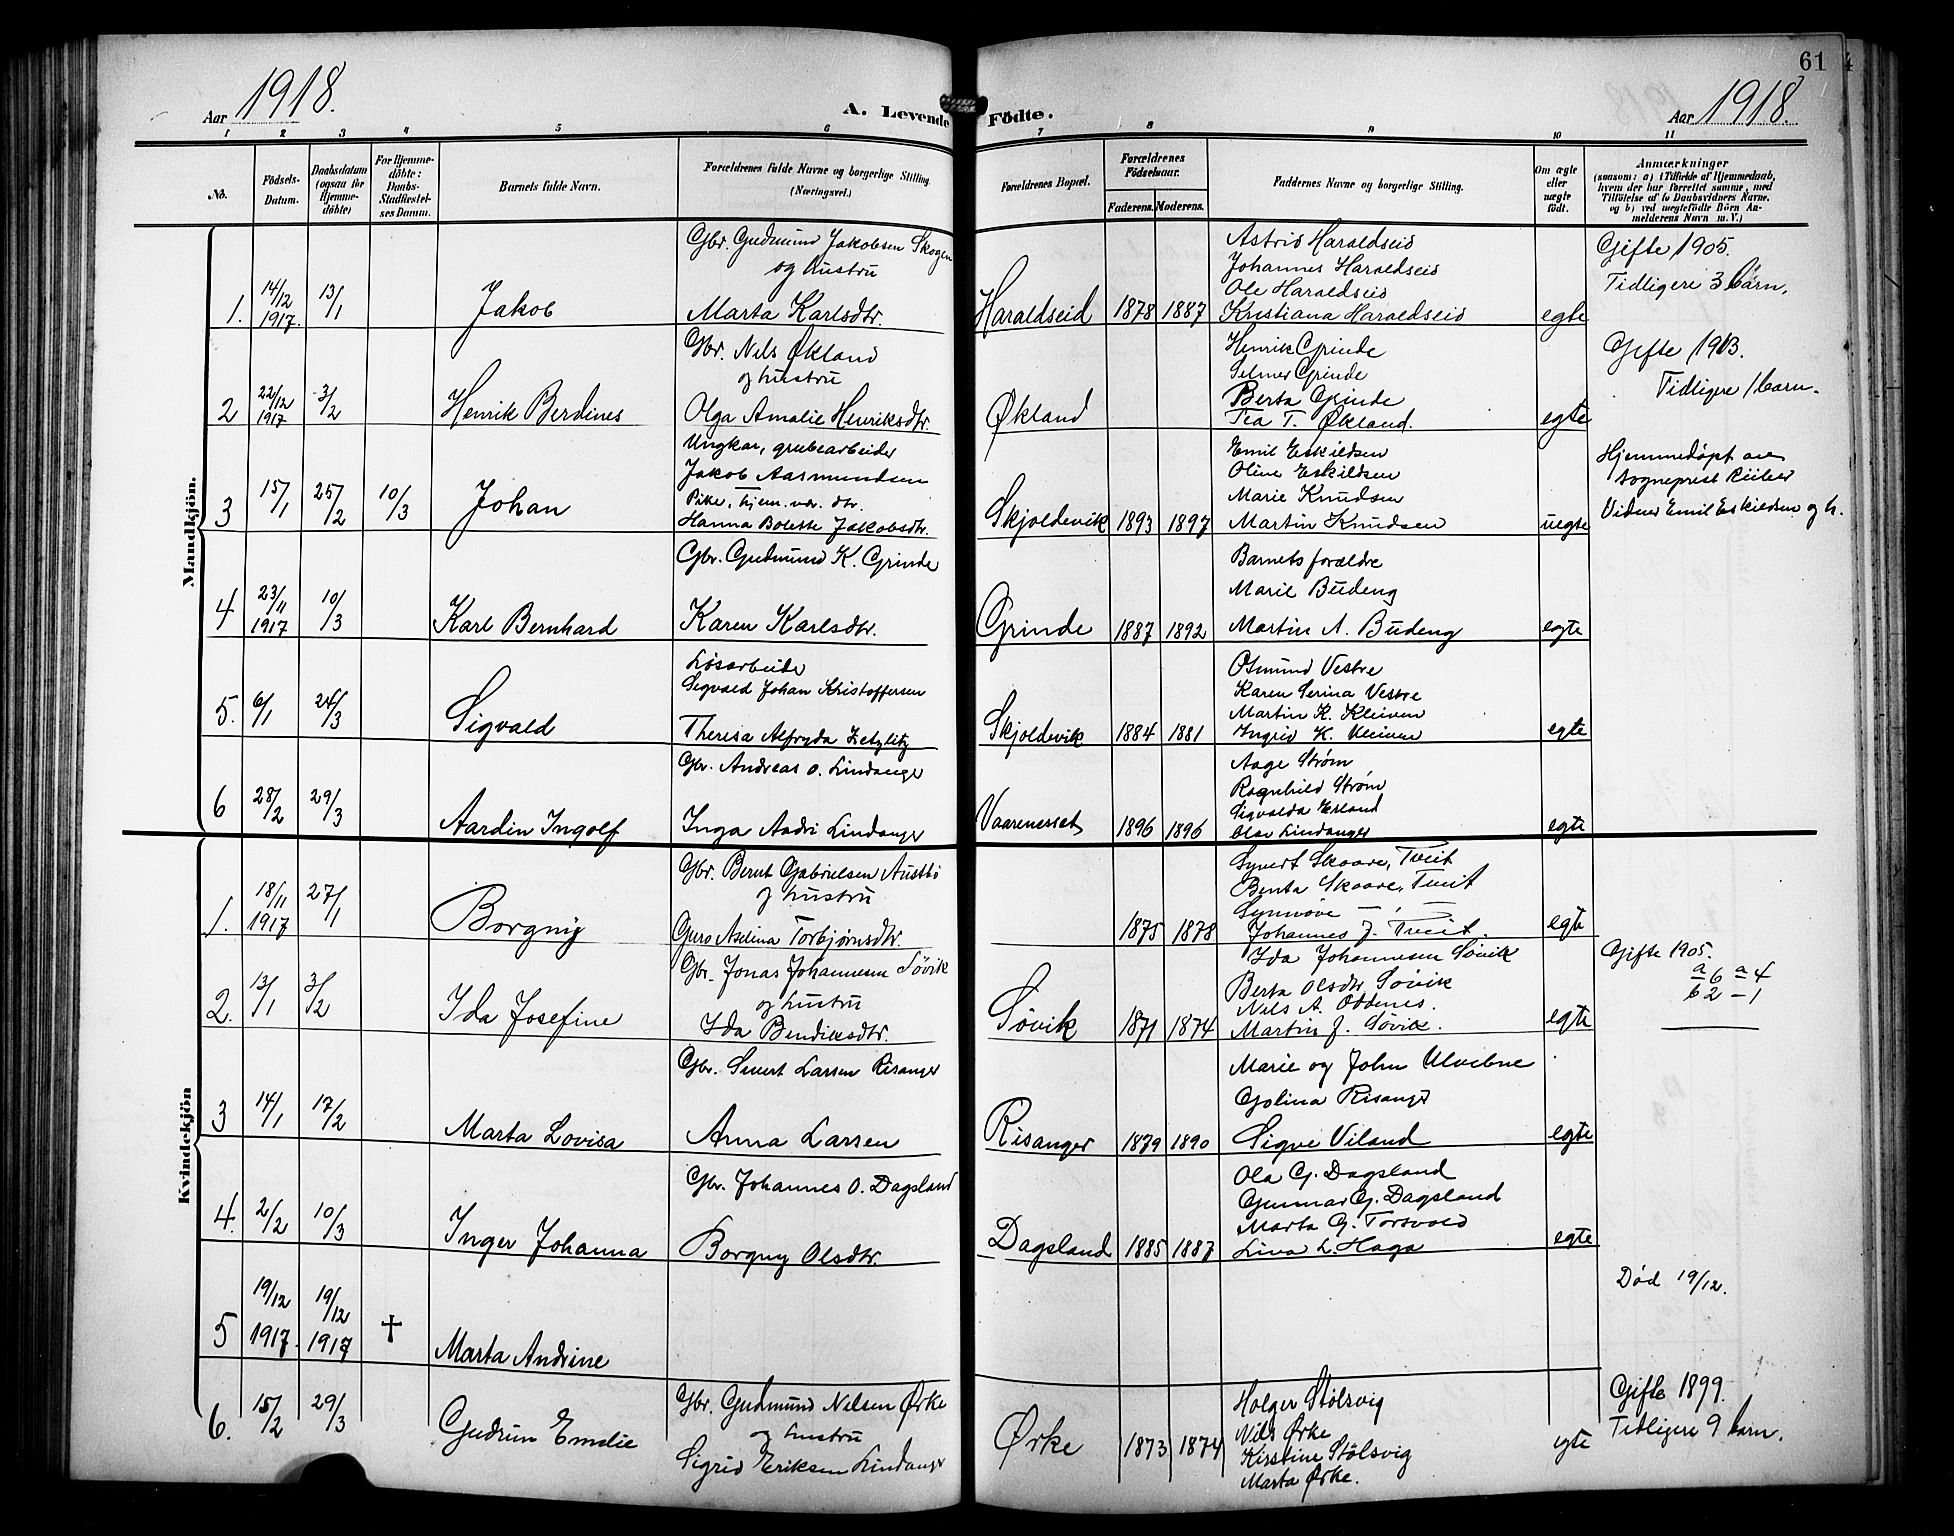 61
Aar 1918.
A. Levende Födte.
Aar 1918.
1 2 3 4 5 6 7 8 9 10 11
No.
Födsels-Datum.
Daabsdatum (ogsaa for Hjemme-döbte)
For Hjemme-döbte: Daabs-Stadfæstel-ses Datum.
Barnets fulde Navn.
Forældrenes fulde Navne og borgerlige Stilling. (Næringsvei.)
Forældrenes Bopæl.
Forældrenes Födselsaar.
Faderens. Moderens.
Faddernes Navne og borgerlige Stilling.
Om ægte eller uægte født.
Anmærkninger
(saasom: a) i Tilfælde af Hjemmedaab,
hvem der har forrettet samme, med
Tilföielse af to Daabsvidners Navne,
og b) ved uægtefödte Börn An-
melderens Navn m. V.)
Mandkjön.
1. 14/12 1917. 13/1 Jakob
Gbr. Gudmund Jakobsen Skogen
og hustru
Marta Karlsdtr.
Haraldseid 1878 1887
Astrid Haraldseid
Johannes Haraldseid
Ole Haraldseid
Kristiana Haraldseid
egte
Gifte 1905.
Tidligere 3 barn.
2 22/12 1917 3/2 Henrik Berdines
Gbr. Nils Økland
og hustru
Olga Amalie Henriksdtr.
Økland
Henrik Grinde
Selmer Grinde
Berta Grinde
Tea T. Økland.
egte
Gifte 1913.
Tidligere 1 barn.
3 15/1 25/2 10/3 Johan
Ungkar, grubearbeider
Jakob Aasmundsen
Pike, hjem. vær. dtr.
Hanna Bolette Jakobsdtr.
Skjoldevik 1893 1897
Emil Eskildsen
Oline Eskildsen
Marie Knudsen
Martin Knudsen
uegte
Hjemmedøpt av
sogneprest
Vidner Emil Eskildsen og h.
4 23/11 1917 10/3 Karl Bernhard
Gbr. Gudmund K. Grinde
Karen Karlsdtr.
Grinde 1887 1892
Barnets forældre
Marie Budeng
Martin A. Budeng
egte
5. 6/1 24/3 Sigvald
Løsarbeider
Sigvald Johan Kristoffersen
Theresa Alfryda Zetzlitz
Skjoldevik 1884 1881
Osmund Vestre
Karen Serina Vestre
Martin K. Kleiven
Ingrid K. Kleiven
egte
6 28/2 29/3 Aardin Ingolf
Gbr. Andreas O. Lindanger
Inga Aadri Lindanger
Vaarenesset 1896 1896
Aage Strøm
Ragnhild Strøm
Sigvalda Erland
Olav Lindanger
egte
Kvindekjön
1. 18/11 1917 27/1 Borgny
Gbr. Bernt Gabrielsen Austbø
og hustru
Guro Aselina Torbjørnsdtr.
1875 1878
Syvert Skaare, Tveit
Benta Skaare, Tveit
Synnøve — , —
Johannes J. Tveit.
egte
2. 13/1 3/2 Ida Josefine
Gbr. Jonas Johannesen Søvik
og hustru
Ida Bendiksdtr.
Søvik 1871 1874
Ida Johannesen Søvik
Berta Olsdtr Søvik
Nils A. Oddenes.
Martin J. Søvik.
egte
Gifte 1905.
a 6 a 4
b 2 – 1
3 14/1 17/2 Marta Lovisa
Gbr. Sivert Larsen Risanger
Anna Larsen
Risanger 1879 1890
Marie og John Ulvebne
Golina Risanger
Sigve Viland
egte
4. 2/2 10/3 Inger Johanna
Gbr. Johannes O. Dagsland
Borgny Olsdtr.
Dagsland 1885 1887
Ola G. Dagsland
Gunnar G. Dagsland
Marta G. Torsvold
Lina L. Haga
egte
5 19/12 1917. 19/12 1917 † Marta Andrine
Død 19/12.
6. 15/2 29/3 Gudrun Emelie
Gbr. Gudmund Nilsen Ørke
og hustru
Sigrid Eriksen Lindanger
Ørke 1873 1874
Holger Stölsvig
Nils Ørke
Kirstine Stölsvig
Marta Ørke.
egte
Gifte 1899.
Tidligere 9 barn.